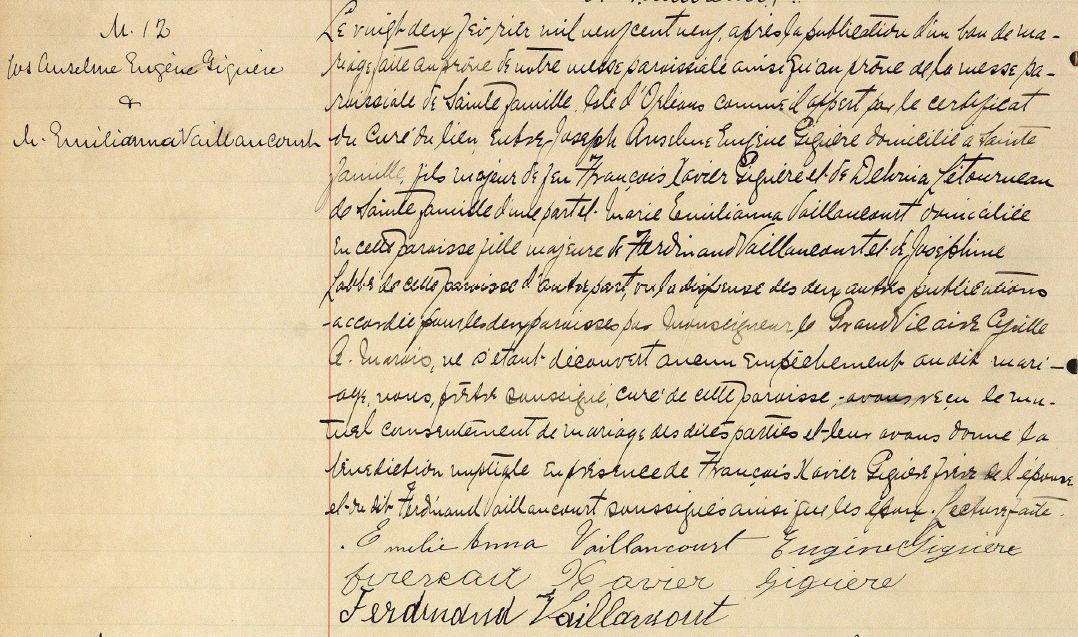 M. 12
Jos Anselme Eugène Giguère
&
M. Emilianna Vaillancourt
Le vingt deux février mil neuf cent neuf, après la publication d'un ban de ma-
riage faite au prône de notre messe paroissiale ainsi qu'au prône de la messe pa-
roissiale de Sainte famille, Isle d'Orléans comme il appert par le certificat
du curé du lieu, entre Joseph Anselme Eugène Giguère domicilié à Sainte
famille, fils majeur de feu François Xavier Giguère et de Delvina Létourneau
de Sainte famille d'une part et marie Emilianna Vaillancourt domiciliée
en cette paroisse fille majeure de Ferdinand Vaillancourt et de Joséphine
Labbé de cette paroisse d'autre part, vu la dispense des deux autres publications
accordée pour les deux paroisses par Monseigneur le Grand Vicaire Cyrille
A. Marois, ne s'étant découvert aucun empêchement au dit mari-
age, nous, prêtre soussigné, curé de cette paroisse, avons reçu le mu-
tuel consentement de mariage des dites parties et leur avons donné la
bénédiction nuptiale en présence de François Xavier Giguère frère de l'époux
et du dit Ferdinand Vaillancourt soussignés ainsi que les époux. Lecture faite.
Emilie Anna Vaillancourt Eugène Giguère
Xavier Giguère
Ferdinand Vaillancourt